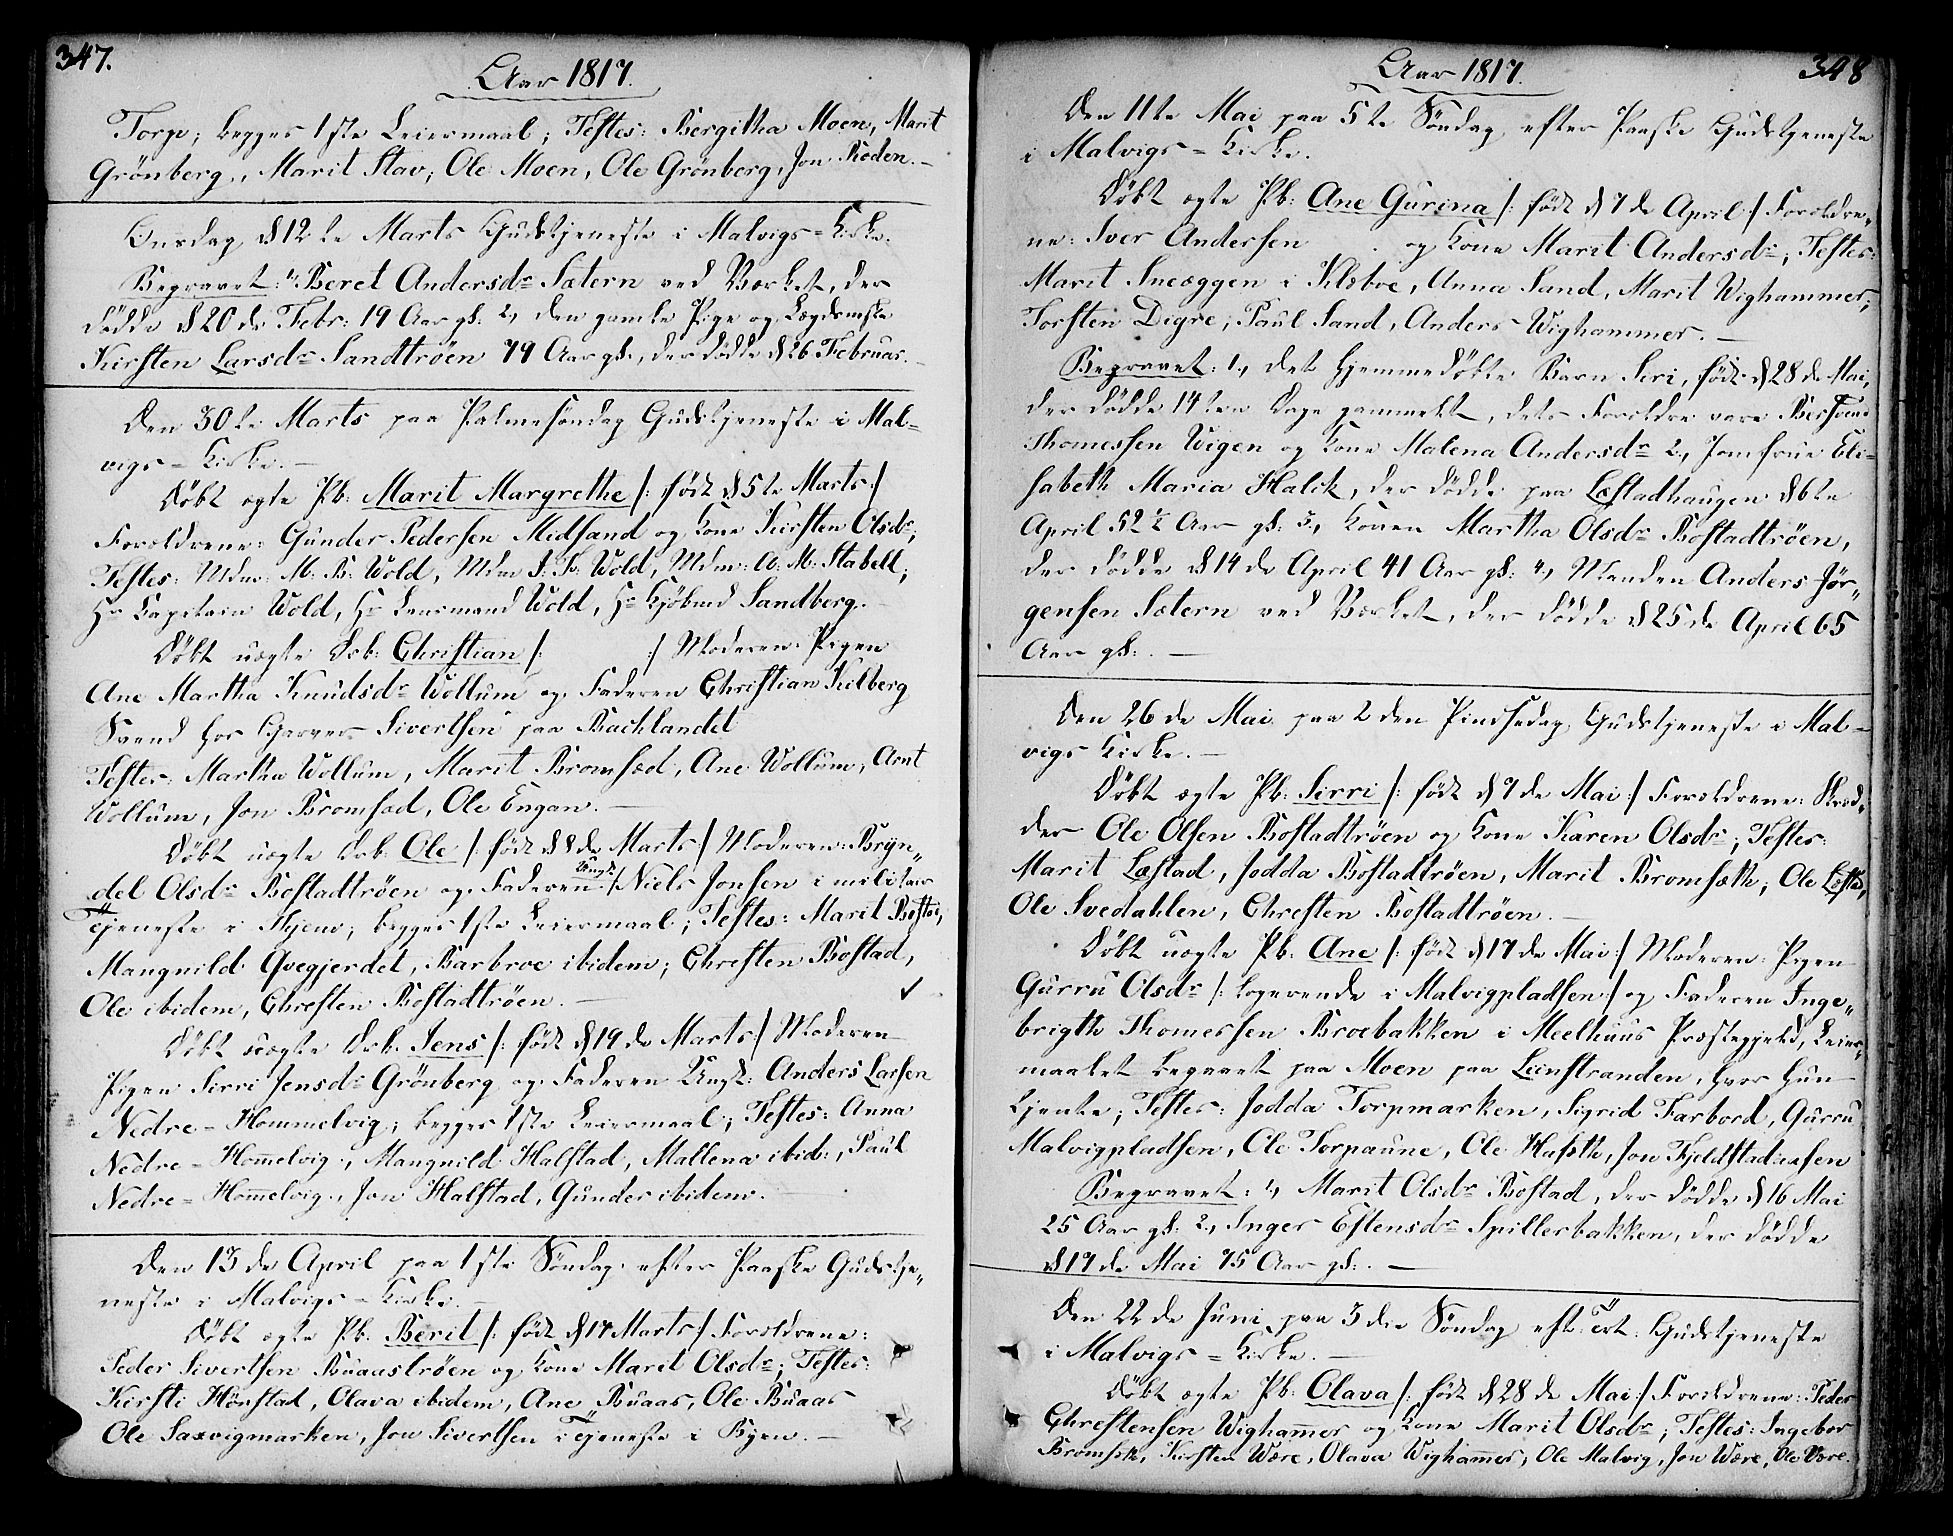 347.
Aar 1817.
Torp; begges 1ste Leiermaal; Testes: Bergitha Moen, Marit
Grönberg, Marit Stav, Ole Moen, Ole Grönberg, Jon Roden.
Onsdag d 12te Marts Gudstjeneste i Malvigs-Kirke.
Begravet: 1, Beret Andersdr Sætern ved Værket, der
dödde d 20de Febr: 19 Aar gl: 2, den gamle Pige og Lægdsenke
Kirsten Larsdr Sandtröen 79 Aar gl:, der dödde d 26 Februar.
Den 30te Marts paa Palmesöndag Gudstjeneste i Mal-
vigs-Kirke.
Döbt egte Pb: Marit Margrethe /: födt d 5te Marts :/
Forældrene: Gunder Pedersen Midsand og Kone Kirsten Olsdr,
Testes: Mdm: M: B: Wold, Mdm I: Wold, Mdm: A: M: Stabell,
Hr Kapitain Wold, Hr Lensmand Wold, Hr Kjöbmd Sandberg.
Döbt uegte Drb: Christian /: :/ Moderen: Pigen
Ane Martha Knudsdr Wollum og Faderen Christian Kilberg
Svend hos Garver Sivertsen paa Bachlandet
Testes: Martha Wollum, Marit Bromsæd, Ane Wollum, Arnt
Wollum, Jon Bromsæd, Ole Engan.
Döbt uegte Drb: Ole /: födt d 8de Marts :/ Moderen: Bryn-
del Olsdr Bostadtröen og Faderen Ungk: Niels Jonsen i militair
Tjeneste i Byen; begges 1ste Leiermaal; Testes: Marit Bostad,
Mangnild Qvegjerdet, Barbroe ibidem; Chresten Bostad,
Ole ibidem, Chresten Bostadtröen.
Döbt uegte Drb. Jens /: födt d 19de Marts :/ Moderen
Pigen Sirri Jensdr Grönberg og Faderen Ungk: Anders Larsen
Nedre-Hommelvig; begges 1ste Leiermaal; Testes: Anna
Nedre-Hom̄elvig, Mangnild Halstad, Mallena ibid:, Paul
Nedre-Hom̄elvig, Jon Halstad, Gunder ibidem.
Den 13de April paa 1ste Söndag efter Paaske Gudstje-
neste i Malvigs-Kirke.
Döbt egte Pb: Berit /: födt d 14 Marts :/ Forældrene:
Peder Sivertsen Buaaströen og Kone Marit Olsdr; Testes:
Kirsti Hönstad, Olava ibidem, Ane Buaas, Ole Buaas
Ole Saxvigmarken, Jon Sivertsen i Tjeneste i Byen.
348
Aar 1817.
Den 11te Mai paa 5te Söndag efter Paaske Gudstjeneste
i Malvigs-Kirke.
Döbt egte Pb: Ane Gurina /: födt d 7de April :/ Forældre-
ne: Iver Andersen og Kone Marit Andersdr, Testes:
Marit Sneæggen i Klæboe, Anna Sand, Marit Wighammer,
Torsten Digre, Paul Sand, Anders Wighammer.
Begravet: 1, det hjemmedöbte Barn Siri, födt d 28de Mai,
der dödde 14ten Dage gammelt, dets Forældre vare Bersvend
Thomessen Wigen og Kone Malena Andersdr 2, Jomfrue Eli-
sabeth Maria Halck, der dödde paa Læstadhaugen d 6te
April 52 ½ Aar gl: 3, Konen Martha Olsdr Bostadtröen,
der dödde d 14de April 41 Aar gl: 4, Manden Anders Jör-
gensen Sætern ved Værket, der dödde d 25de April 65
Aar gl:.
Den 26de Mai paa 2den Pindsedag Gudstjeneste i Mal-
vigs Kirke.
Döbt egte Pb: Sirri /: födt d 7de Mai :/ Forældrene: Skræd-
der Ole Olsen Bostadtröen og Kone Karen Olsdr; Testes:
Marit Læstad, Jodda Bostadtröen, Marit Bromseth, Ole Læstad,
Ole Svedahlen, Chresten Bostadtröen.
Döbt uegte Pb: Ane /: födt d 17de Mai :/ Moderen: Pigen
Gurru Olsdr /: logerende i Malvigpladsen :/ og Faderen Inge-
brigth Thomessen Broebakken i Meelhuus Præstegjeld, Leier-
maalet begaaet paa Moen paa Leinstranden, hvor hun
tjente; Testes: Jodda Torpmarken, Sigrid Farbord, Gurru
Malvigpladsen, Ole Torpaune, Ole Husbk, Jon Fjeldstadaasen
Begravet: 1, Marit Olsdr Bostad, der dödde d 16 Mai
25 Aar gl: 2, Inger Estensdr Spillerbakken, der dödde
d 17de Mai 75 Aar gl:.
Den 22de Juni paa 3die Söndag eft: Trt: Gudstjeneste
i Malvigs-Kirke.
Döbt egte Pb: Olava /: födt d 28de Mai :/ Forældrene: Peder
Chrestensen Wigham̄er og Kone Marit Olsdr, Testes: Ingebor
Bromsth, Kirsten Wære, Olava Wigham̄er, Ole Malvig, Jon Wære, Ole Være.